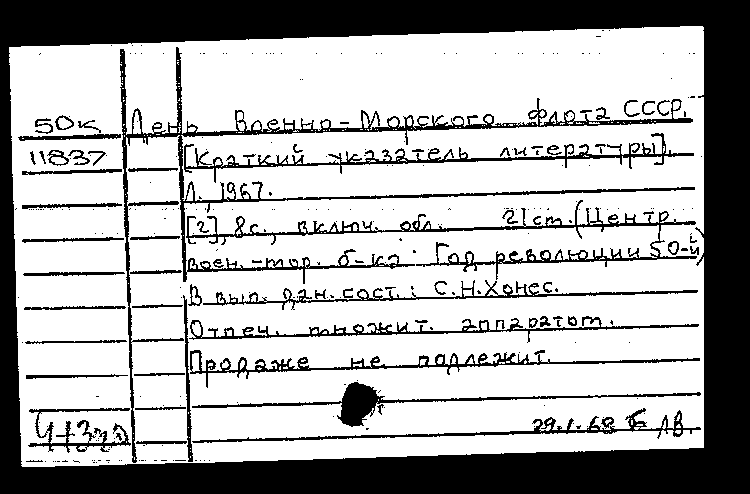 50к День Военно-Морского флота СССР.
11837 [Краткий указатель литературы].
Л., 1967.
[2], 8 с., включ. обл. 21 cm. (Центр.
воен.-мор. б-ка. Год революции 50-й)
В вып. дан. сост.: С.Н.Хонес.
Отпеч. множит. аппаратом.
Продаже не подлежит.
29.1.68 ЛВ.